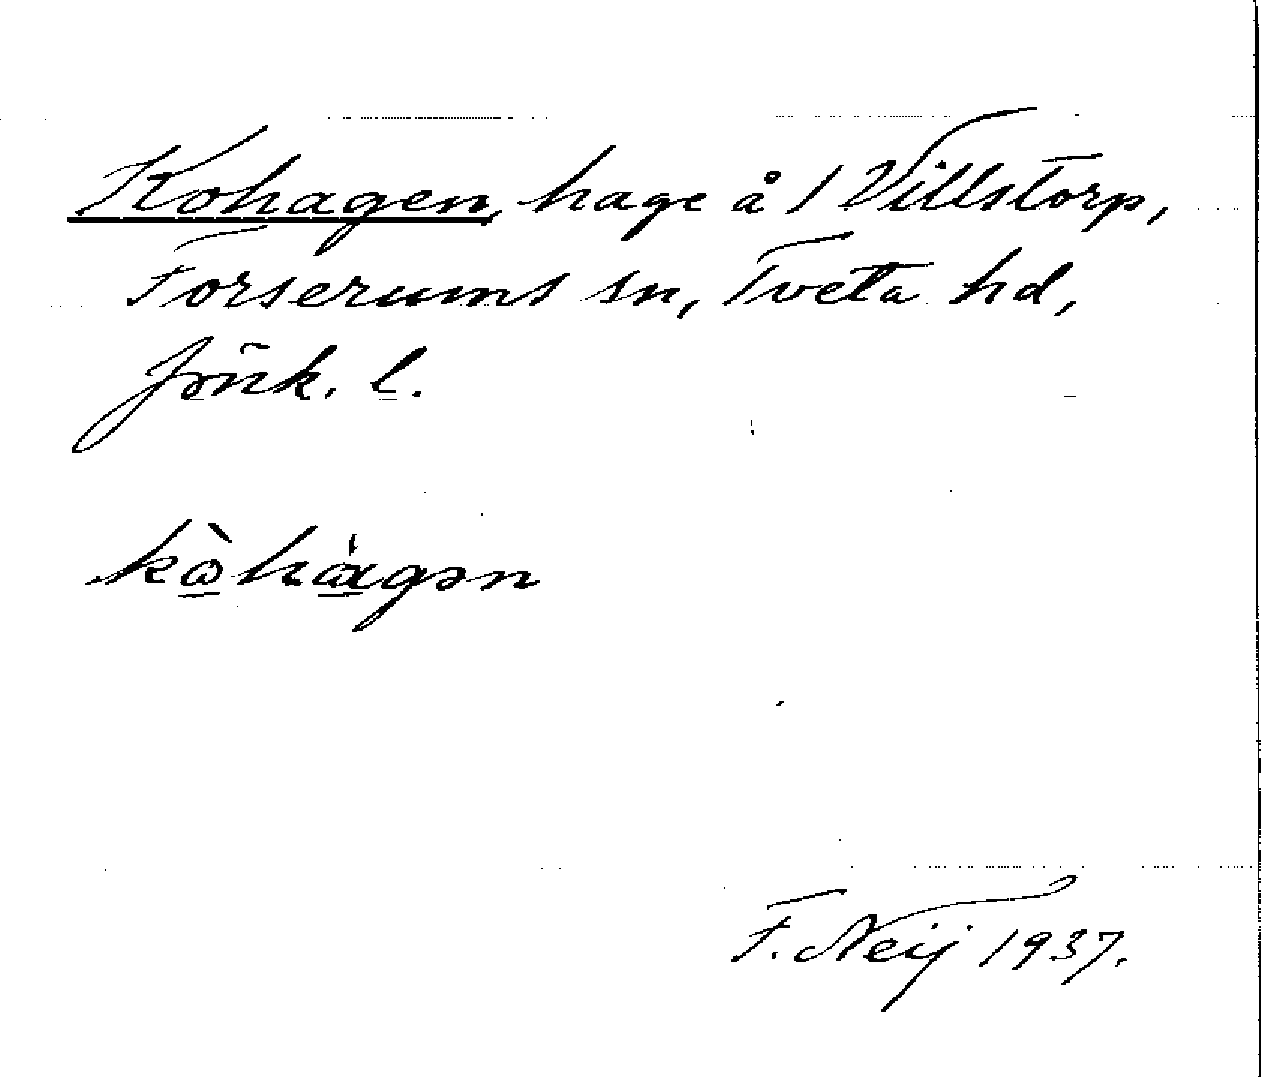 Kohagen, hage å 1 Villstorp,
Forserums sn, Tveta hd,
Jönk. l.
kὼhàgən
F. Neij 1937.